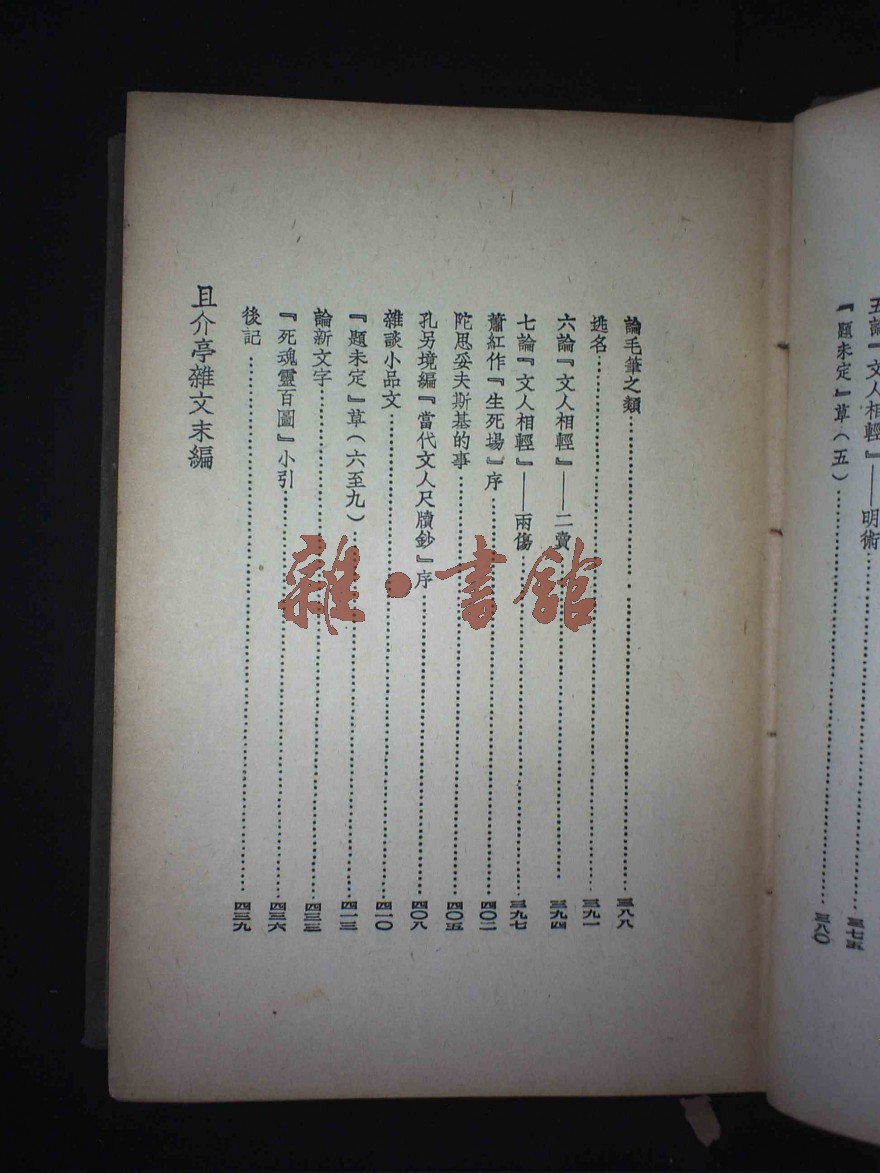 五論『文人相輕』——明術……三七五
『題未定』草（五）……三八〇
論毛筆之類……三八八
逃名……三九一
六論『文人相輕』——二賣……三九四
七論『文人相輕』——兩傷……三九七
蕭紅作『生死場』序……四〇二
陀思妥夫斯基的事……四〇五
孔另境編『當代文人尺牘鈔』序……四〇八
雜談小品文……四一〇
『題未定』草（六至九）……四一三
論新文字……四三三
『死魂靈百圖』小引……四三六
後記……四三九
且介亭雜文末編
雜·書館